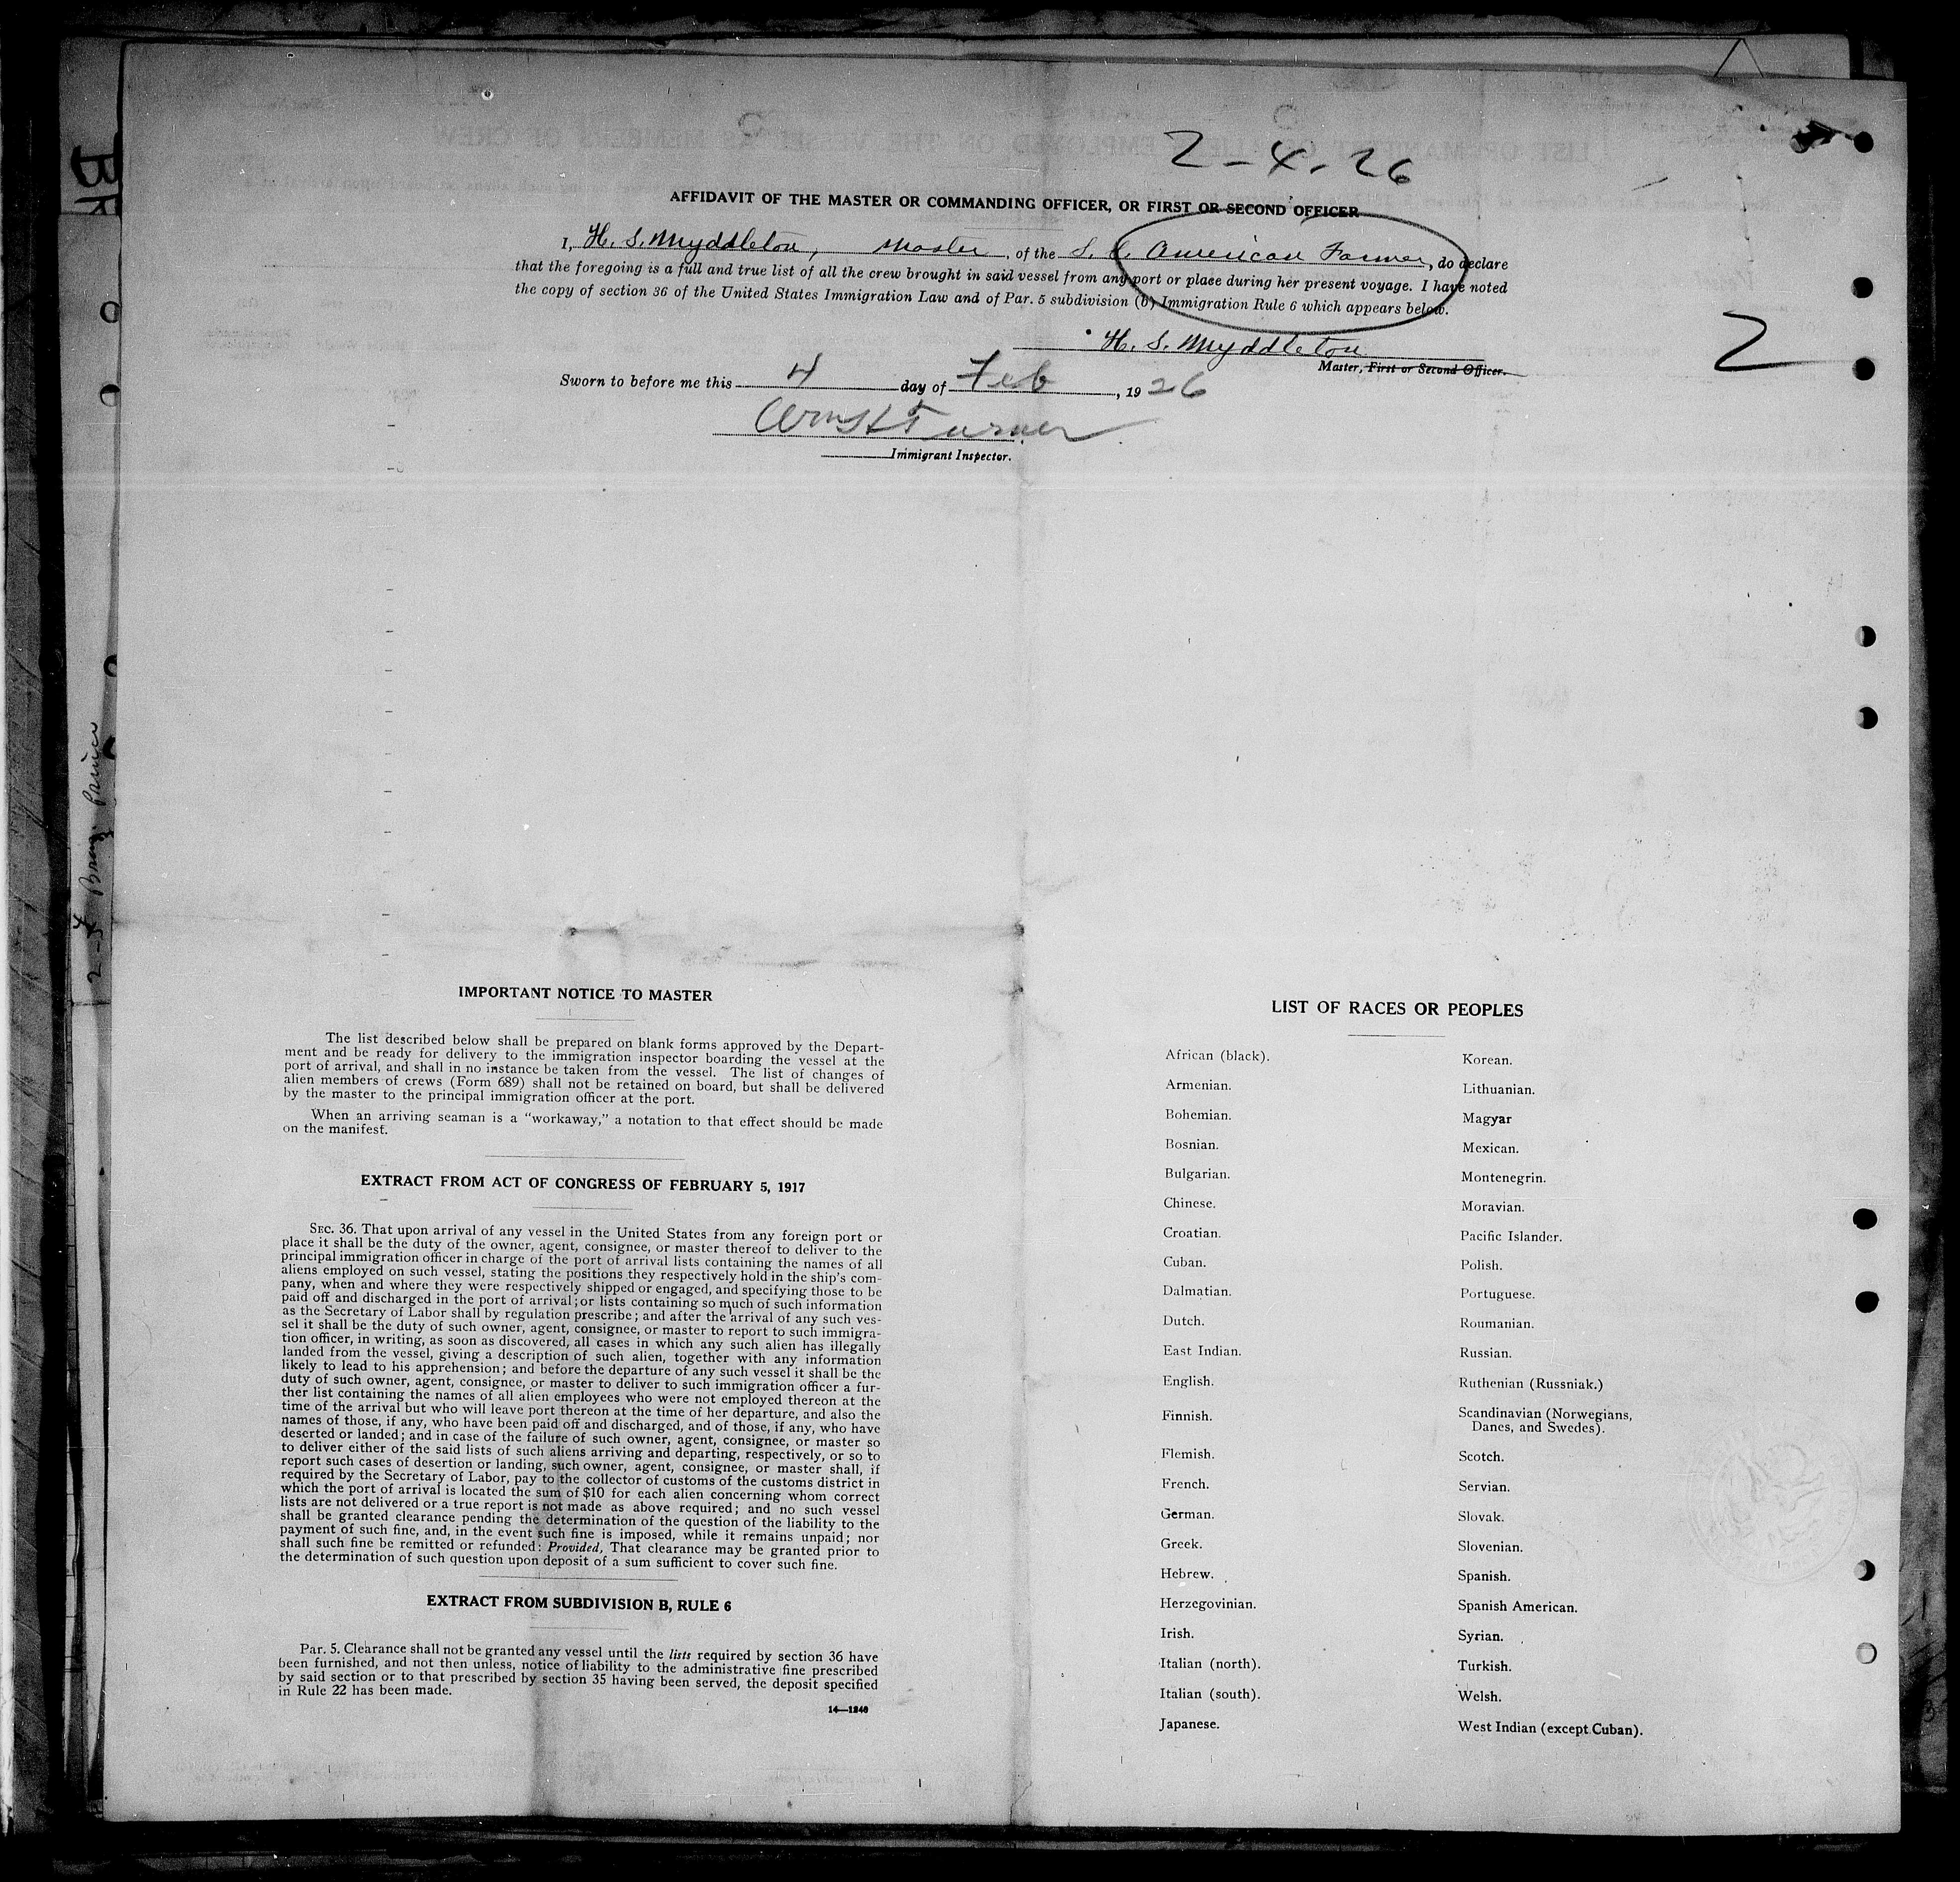 2-4-26
AFFIDAVIT OF THE MASTER OR COMMANDING OFFICER, OR FIRST OR SECOND OFFICER
I, H. S. Myddleton, Master, of the S. S. American Farmer, do declare
that the foregoing is a full and true list of all the crew brought in said vessel from any port or place during her present voyage. I have noted
the copy of section 36 of the United States Immigration Law and of Par. 5 subdivision (b) Immigration Rule 6 which appears below.
H. S. Myddleton
Master, First or Second Officer.
2
Sworn to before me this 4 day of Feb, 1926
Turner
Immigrant Inspector.
2-4 Braz. Prince
IMPORTANT NOTICE TO MASTER
The list described below shall be prepared on blank forms approved by the Depart-
ment and be ready for delivery to the immigration inspector boarding the vessel at the
port of arrival, and shall in no instance be taken from the vessel. The list of changes of
alien members of crews (Form 689) shall not be retained on board, but shall be delivered
by the master to the principal immigration officer at the port.
When an arriving seaman is a "workaway," a notation to that effect should be made
on the manifest.
EXTRACT FROM ACT OF CONGRESS OF FEBRUARY 5, 1917
SEC. 36. That upon arrival of any vessel in the United States from any foreign port or
place it shall be the duty of the owner, agent, consignee, or master thereof to deliver to the
principal immigration officer in charge of the port of arrival lists containing the names of all
aliens employed on such vessel, stating the positions they respectively hold in the ship's com-
pany, when and where they were respectively shipped or engaged, and specifying those to be
paid off and discharged in the port of arrival; or lists containing so much of such information
as the Secretary of Labor shall by regulation prescribe; and after the arrival of any such ves-
sel it shall be the duty of such owner, agent, consignee, or master to report to such immigra-
tion officer, in writing, as soon as discovered, all cases in which any such alien has illegally
landed from the vessel, giving a description of such alien, together with any information
likely to lead to his apprehension; and before the departure of any such vessel it shall be the
duty of such owner, agent, consignee, or master to deliver to such immigration officer a fur-
ther list containing the names of all alien employees who were not employed thereon at the
time of the arrival but who will leave port thereon at the time of her departure, and also the
names of those, if any, who have been paid off and discharged, and of those, if any, who have
deserted or landed; and in case of the failure of such owner, agent, consignee, or master so
to deliver either of the said lists of such aliens arriving and departing, respectively, or so to
report such cases of desertion or landing, such owner, agent, consignee, or master shall, if
required by the Secretary of Labor, pay to the collector of customs of the customs district in
which the port of arrival is located the sum of $10 for each alien concerning whom correct
lists are not delivered or a true report is not made as above required; and no such vessel
shall be granted clearance pending the determination of the question of the liability to the
payment of such fine, and, in the event such fine is imposed, while it remains unpaid; nor
shall such fine be remitted or refunded: Provided, That clearance may be granted prior to
the determination of such question upon deposit of a sum sufficient to cover such fine.
EXTRACT FROM SUBDIVISION B, RULE 6
Par. 5. Clearance shall not be granted any vessel until the lists required by section 36 have
been furnished, and not then unless, notice of liability to the administrative fine prescribed
by said section or to that prescribed by section 35 having been served, the deposit specified
in Rule 22 has been made.
14—1240
LIST OF RACES OR PEOPLES
African (black).
Armenian.
Bohemian.
Bosnian.
Bulgarian.
Chinese.
Croatian.
Cuban.
Dalmatian.
Dutch.
East Indian.
English.
Finnish.
Flemish.
French.
German.
Greek.
Hebrew.
Herzegovinian.
Irish.
Italian (north).
Italian (south).
Japanese.
Korean.
Lithuanian.
Magyar
Mexican.
Montenegrin.
Moravian.
Pacific Islander.
Polish.
Portuguese.
Roumanian.
Russian.
Ruthenian (Russniak.)
Scandinavian (Norwegians,
Danes, and Swedes).
Scotch.
Servian.
Slovak.
Slovenian.
Spanish.
Spanish American.
Syrian.
Turkish.
Welsh.
West Indian (except Cuban).